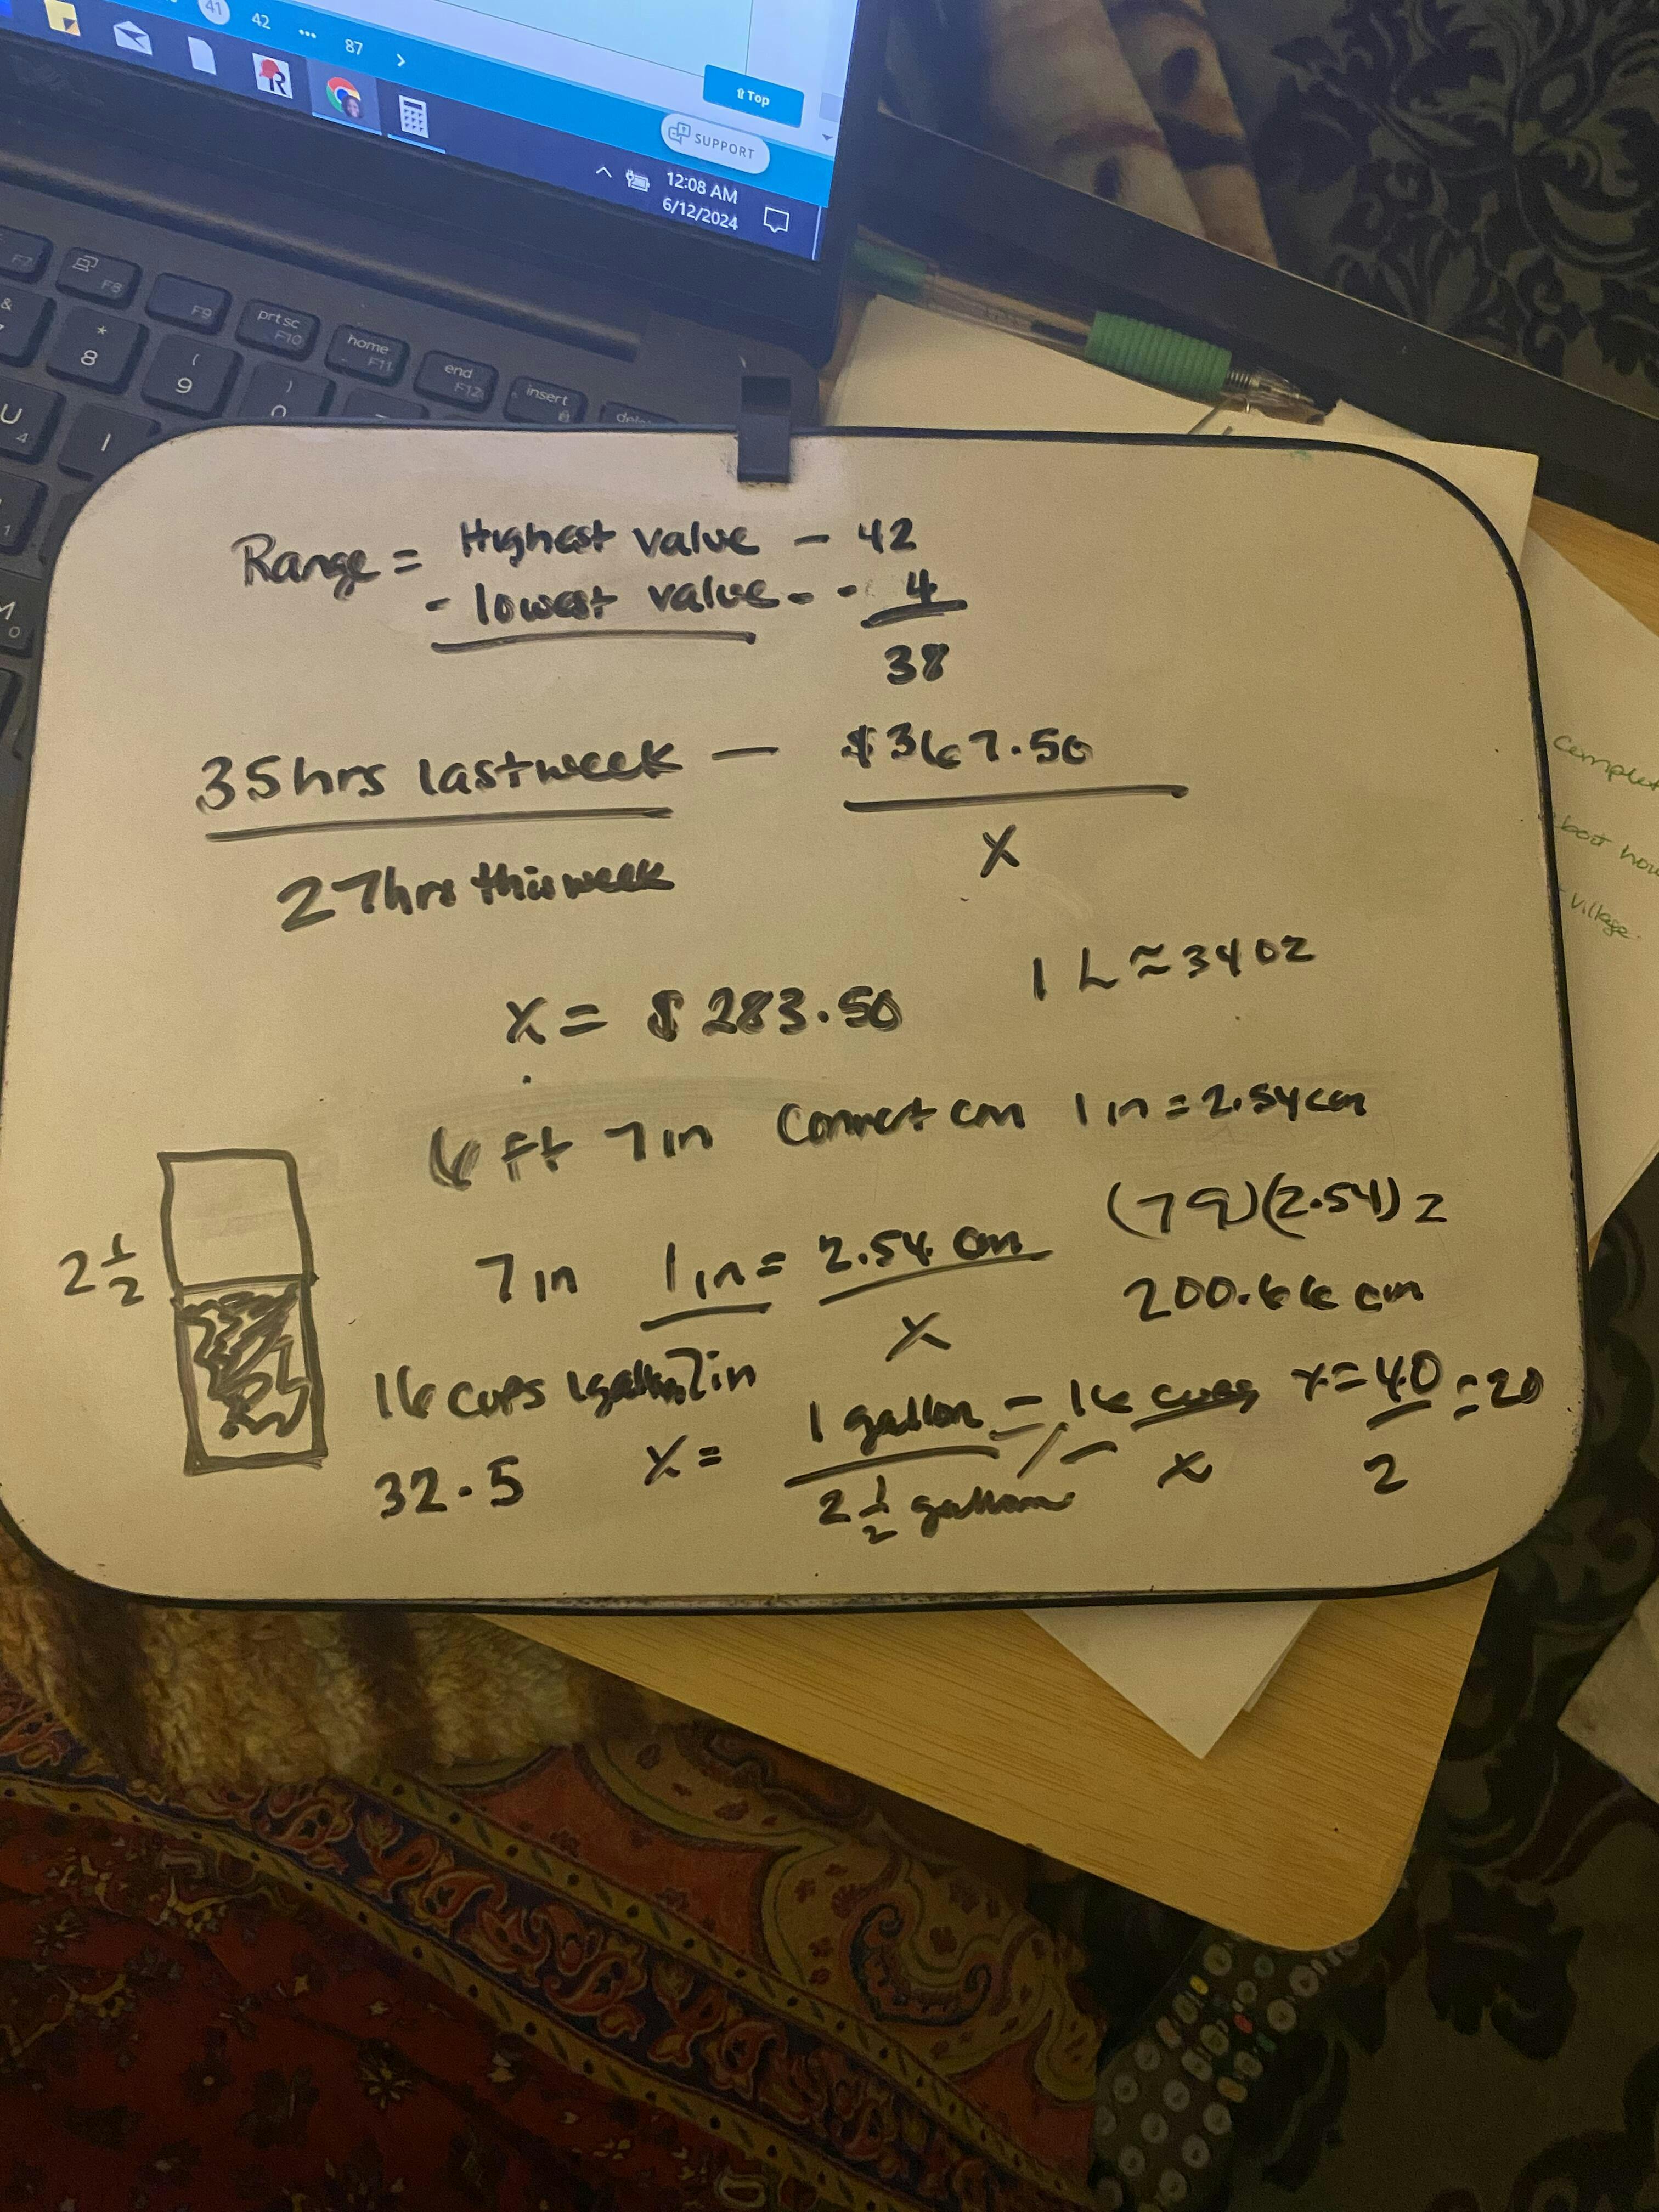 41 42 ... 87 >
⇧Top
SUPPORT
12:08 AM
6/12/2024
F7 F8 F9 prt sc F10 home F11 end F12 insert
& 7 * 8 ( 9 )
U 4 I
1
M 0
Range = Highest value - 42
- lowest value - - 4
38
35hrs last week — $367.50
27hrs this week x
x = $283.50 1 L ≈ 34 oz
6 ft 7 in Convert cm 1 in = 2.54 cm
(79)(2.54) =
2 1/2 7 in 1 in = 2.54 cm 200.66 cm
x
16 cups 1 gallon 7 in 1 gallon = 16 cups x = 40 = 20
32.5 x = 2 1/2 gallons x 2
Village